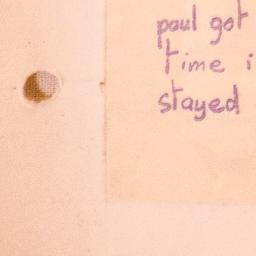 paul got
time i
stayed